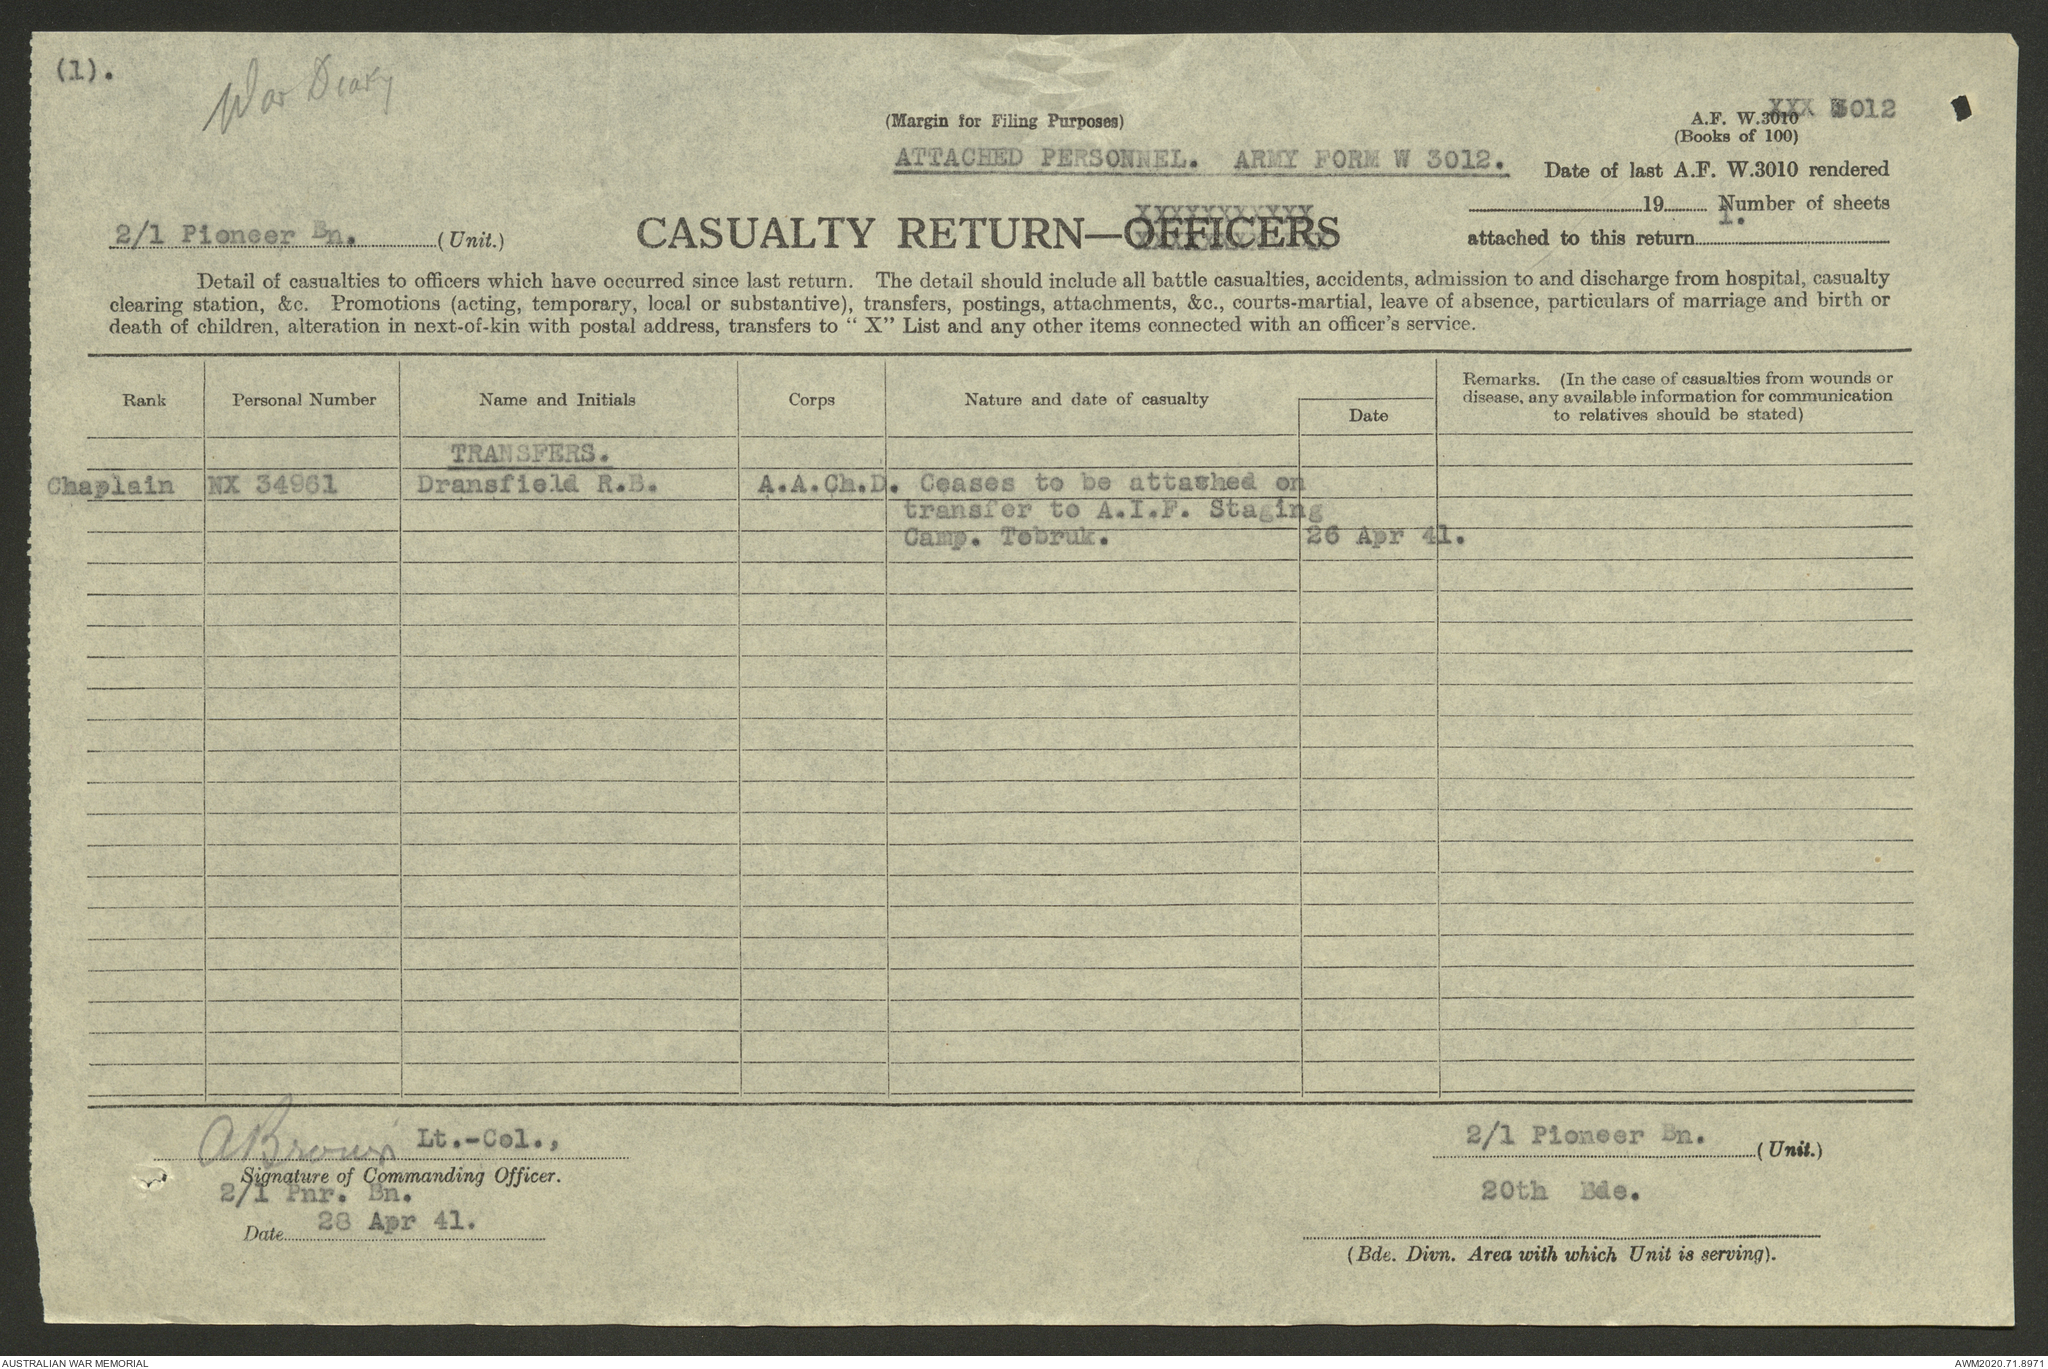 (1).
War Diary
(Margin for Filing Purposes)
A.F. W.3010 XXX 3012
(Books of 100)
ATTACHED PERSONNEL. ARMY FORM W 3012.
Date of last A.F. W.3010 rendered
19 Number of sheets
attached to this return 1.
2/1 Pioneer Bn. (Unit.)
CASUALTY RETURN—OFFICERS
Detail of casualties to officers which have occurred since last return. The detail should include all battle casualties, accidents, admission to and discharge from hospital, casualty
clearing station, &c. Promotions (acting, temporary, local or substantive), transfers, postings, attachments, &c., courts-martial, leave of absence, particulars of marriage and birth or
death of children, alteration in next-of-kin with postal address, transfers to "X" List and any other items connected with an officer's service.
Rank Personal Number Name and Initials Corps Nature and date of casualty Date
Remarks. (In the case of casualties from wounds or
disease, any available information for communication
to relatives should be stated)
TRANSFERS.
Chaplain NX 34961 Dransfield R.B. A.A.Ch.D. Ceases to be attached on
transfer to A.I.F. Staging
Camp. Tobruk. 26 Apr 41.
A Brown Lt.-Col.,
Signature of Commanding Officer.
2/1 Pnr. Bn.
Date 28 Apr 41.
2/1 Pioneer Bn. (Unit.)
20th Bde.
(Bde. Divn. Area with which Unit is serving).
AUSTRALIAN WAR MEMORIAL
AWM2020.71.8971